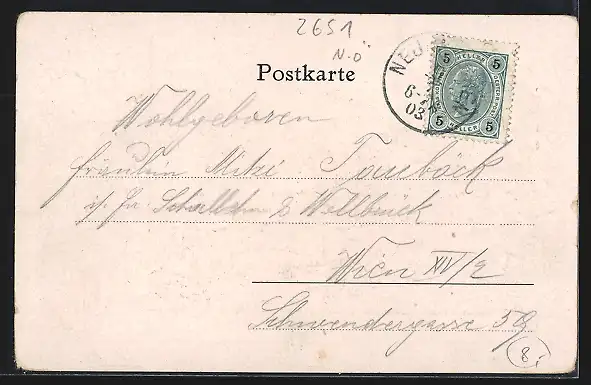 2651
N.Ö
Postkarte
NEU
6
03
5 HELLER 5
5 HELLER 5
Wohlgeboren
Fräulein Mitzi Tauböck
Wien XIV/2
Schwendergasse 59
8